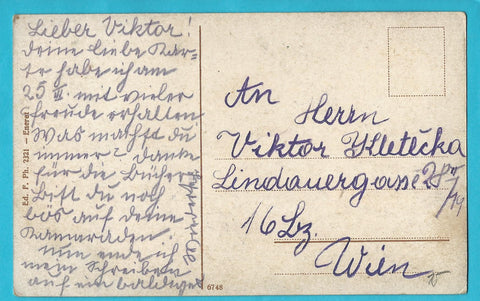 Lieber Viktor!
deine liebe Kar=
te habe ich am
25 II. mit vieler
freude erhalten
Was machst du
immer? danke
für die Bücher
Bist du noch
bös auf deine
Kamaraden.
nun ende ich
mein Schreiben
auf ein baldiges
Ed. F. Ph. 2131 –
An
Herrn
Viktor Kletečka
Lindauergasse
16 Bz.
Wien
6748